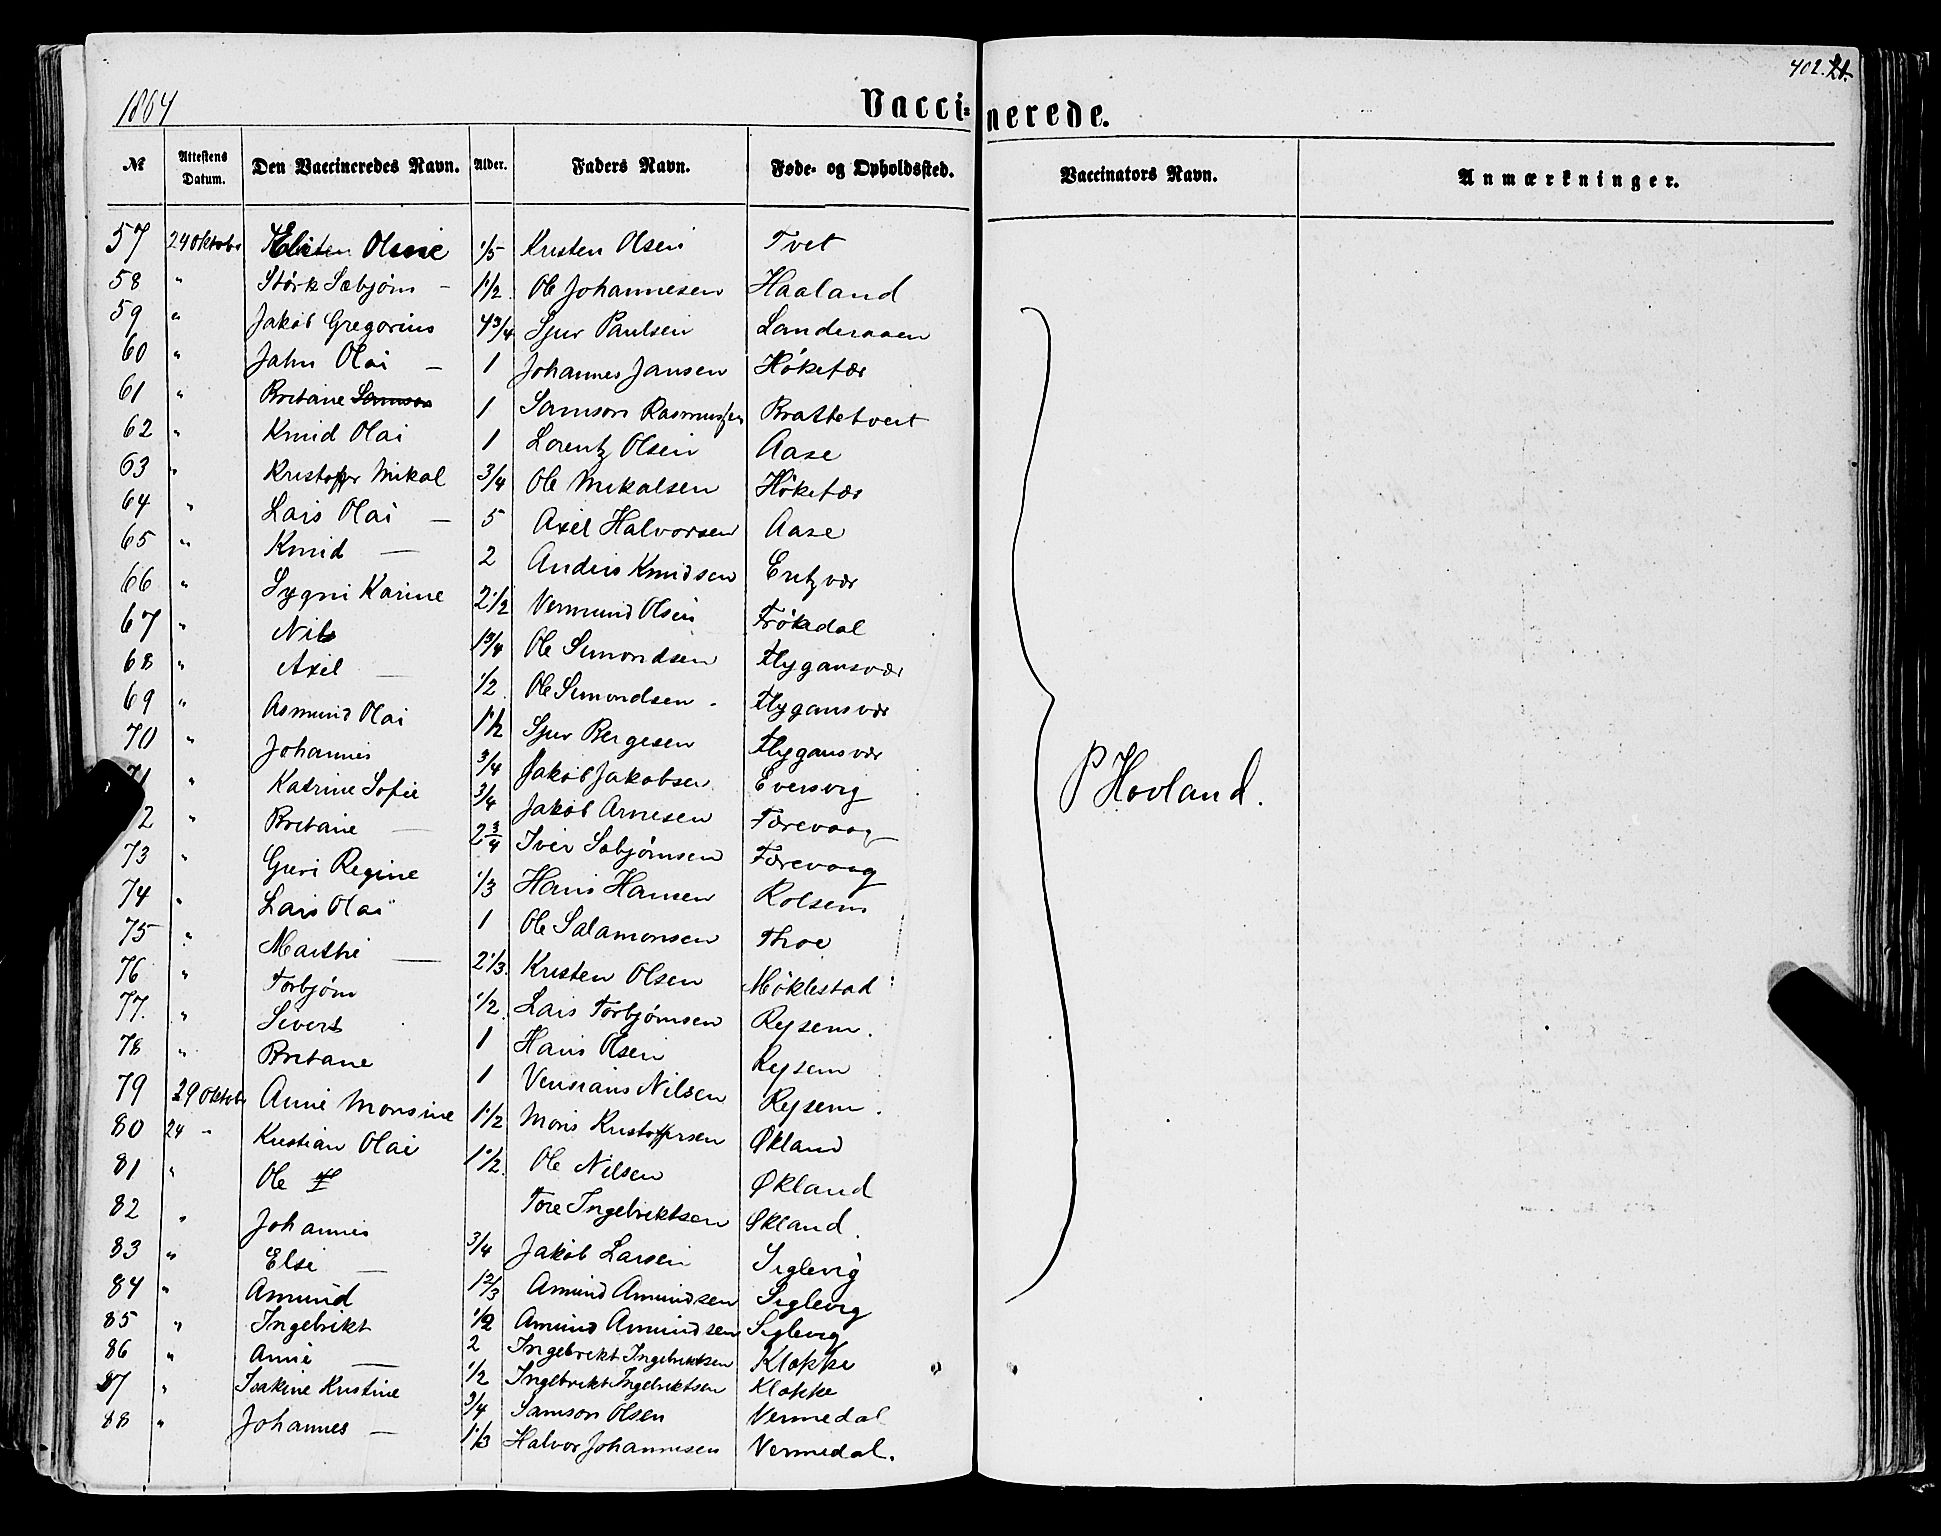 402. 21.
1864 Vaccinerede.
№ Attestens Datum. Den Vaccineredes Navn. Alder. Faders Navn. Føde- og Opholdssted. Vaccinators Navn. Anmærkninger.
57 24 Oktobr Olene 1/5 Kristen Olsen Tvet
58 " Størk Sæbjørn - 1 1/2. Ole Johannesen Haaland
59 " Jakob Gregorius 4 3/4 Sjur Paulsen Landeraaen
60 " Jahn Olai - 1 Johannes Jansen Høkefær
61 " Britane Samson 1 Samson Rasmussen Brattetveit
62 " Knud Olai 1 Lorentz Olsen Aase
63 " Kristoffer Mikal 3/4 Ole Mikalsen Høkefær
64 " Lars Olai - 5 Axel Halvorsen Aase
65 " Knud - 2 Anders Knudsen Eritzvær
66 " Sygni Karine 2 1/2 Vermund Olsen Frøkedal
67 " Nils 1 3/4 Ole Simondsen Flygansvær
68 " Axel - 1/2. Ole Simondsen - Flygansvær
69 " Asmund Olai 1 1/2 Sjur Bergesen Flygansvær
70 " Johannes 3/4 Jakob Jakobsen Eversvig
71 " Katrine Sofie 3/4 Jakob Arnesen Færevaag
72 " Britane - 2 3/4 Iver Sebjørnsen Færevaag
73 " Guri Regine 1/3 Hans Hansen Rolsem
74 " Lars Olai 1 Ole Salamonsen Thoe
75 " Marthe - 2 1/3. Kristen Olsen Møklestad
76 " Torbjørn 1/2. Lars Torbjørnsen Rysem.
77. " Sivert 1 Hans Olsen Rysem
78 " Britane 1 Vensians Nilsen Rysem.
79 29 Oktobr Anne Monsine 1 1/2 Mons Kristoffersen Økland
80 24 " Kristian Olai 1 1/2. Ole Nilsen Økland
81 " Ole Tore Ingebriktsen Økland.
82 " Johannes 3/4 Jakob Larsen Siglevig
83 " Else - 1 2/3 Amund Amundsen Siglevig
84 " Amund 1/2 Amund Amundsen Siglevig
85 " Ingebrikt 2 Ingebrikt Ingebriktsen Kloppe
86 " Anne - 1/2 Ingebrikt Ingebriktsen Kloppe
87 " Joakine Kristine 3/4 Samson Olsen Vermedal
88 " Johannes - 1 1/3 Halvor Johannesen Vermedal.
P Hovland.